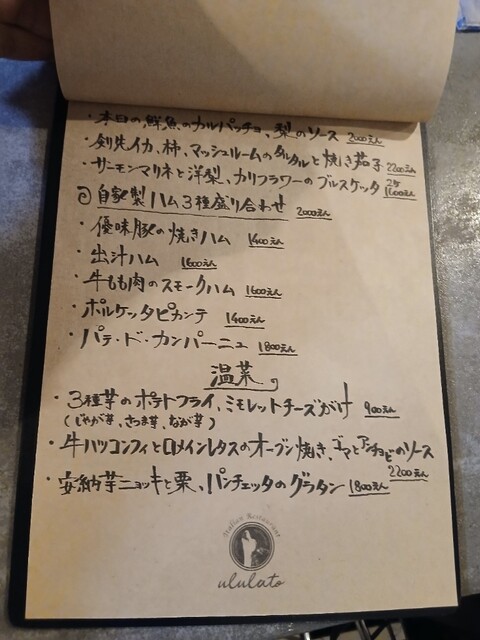 ・本日の鮮魚のカルパッチョ、梨のソース 2000えん
・剣先イカ、柿、マッシュルームのタルタルと焼き茄子 2200えん
・サーモンマリネと洋梨、カリフラワーのブルスケッタ 2ケ 1600えん
自家製ハム3種盛り合わせ 2000えん
・優味豚の焼きハム 1400えん
・出汁ハム 1600えん
・牛もも肉のスモークハム 1600えん
・ポルケッタピカンテ 1400えん
・パテ・ド・カンパーニュ 1800えん
温菜
・3種芋のポテトフライ、ミモレットチーズがけ 900えん
(じゃが芋、さつま芋、なが芋)
・牛ハツコンフィとロメインレタスのオーブン焼き、ゴマとアンチョビのソース
2200えん
・安納芋ニョッキと栗、パンチェッタのグラタン 1800えん
Italian Restaurant
ululato